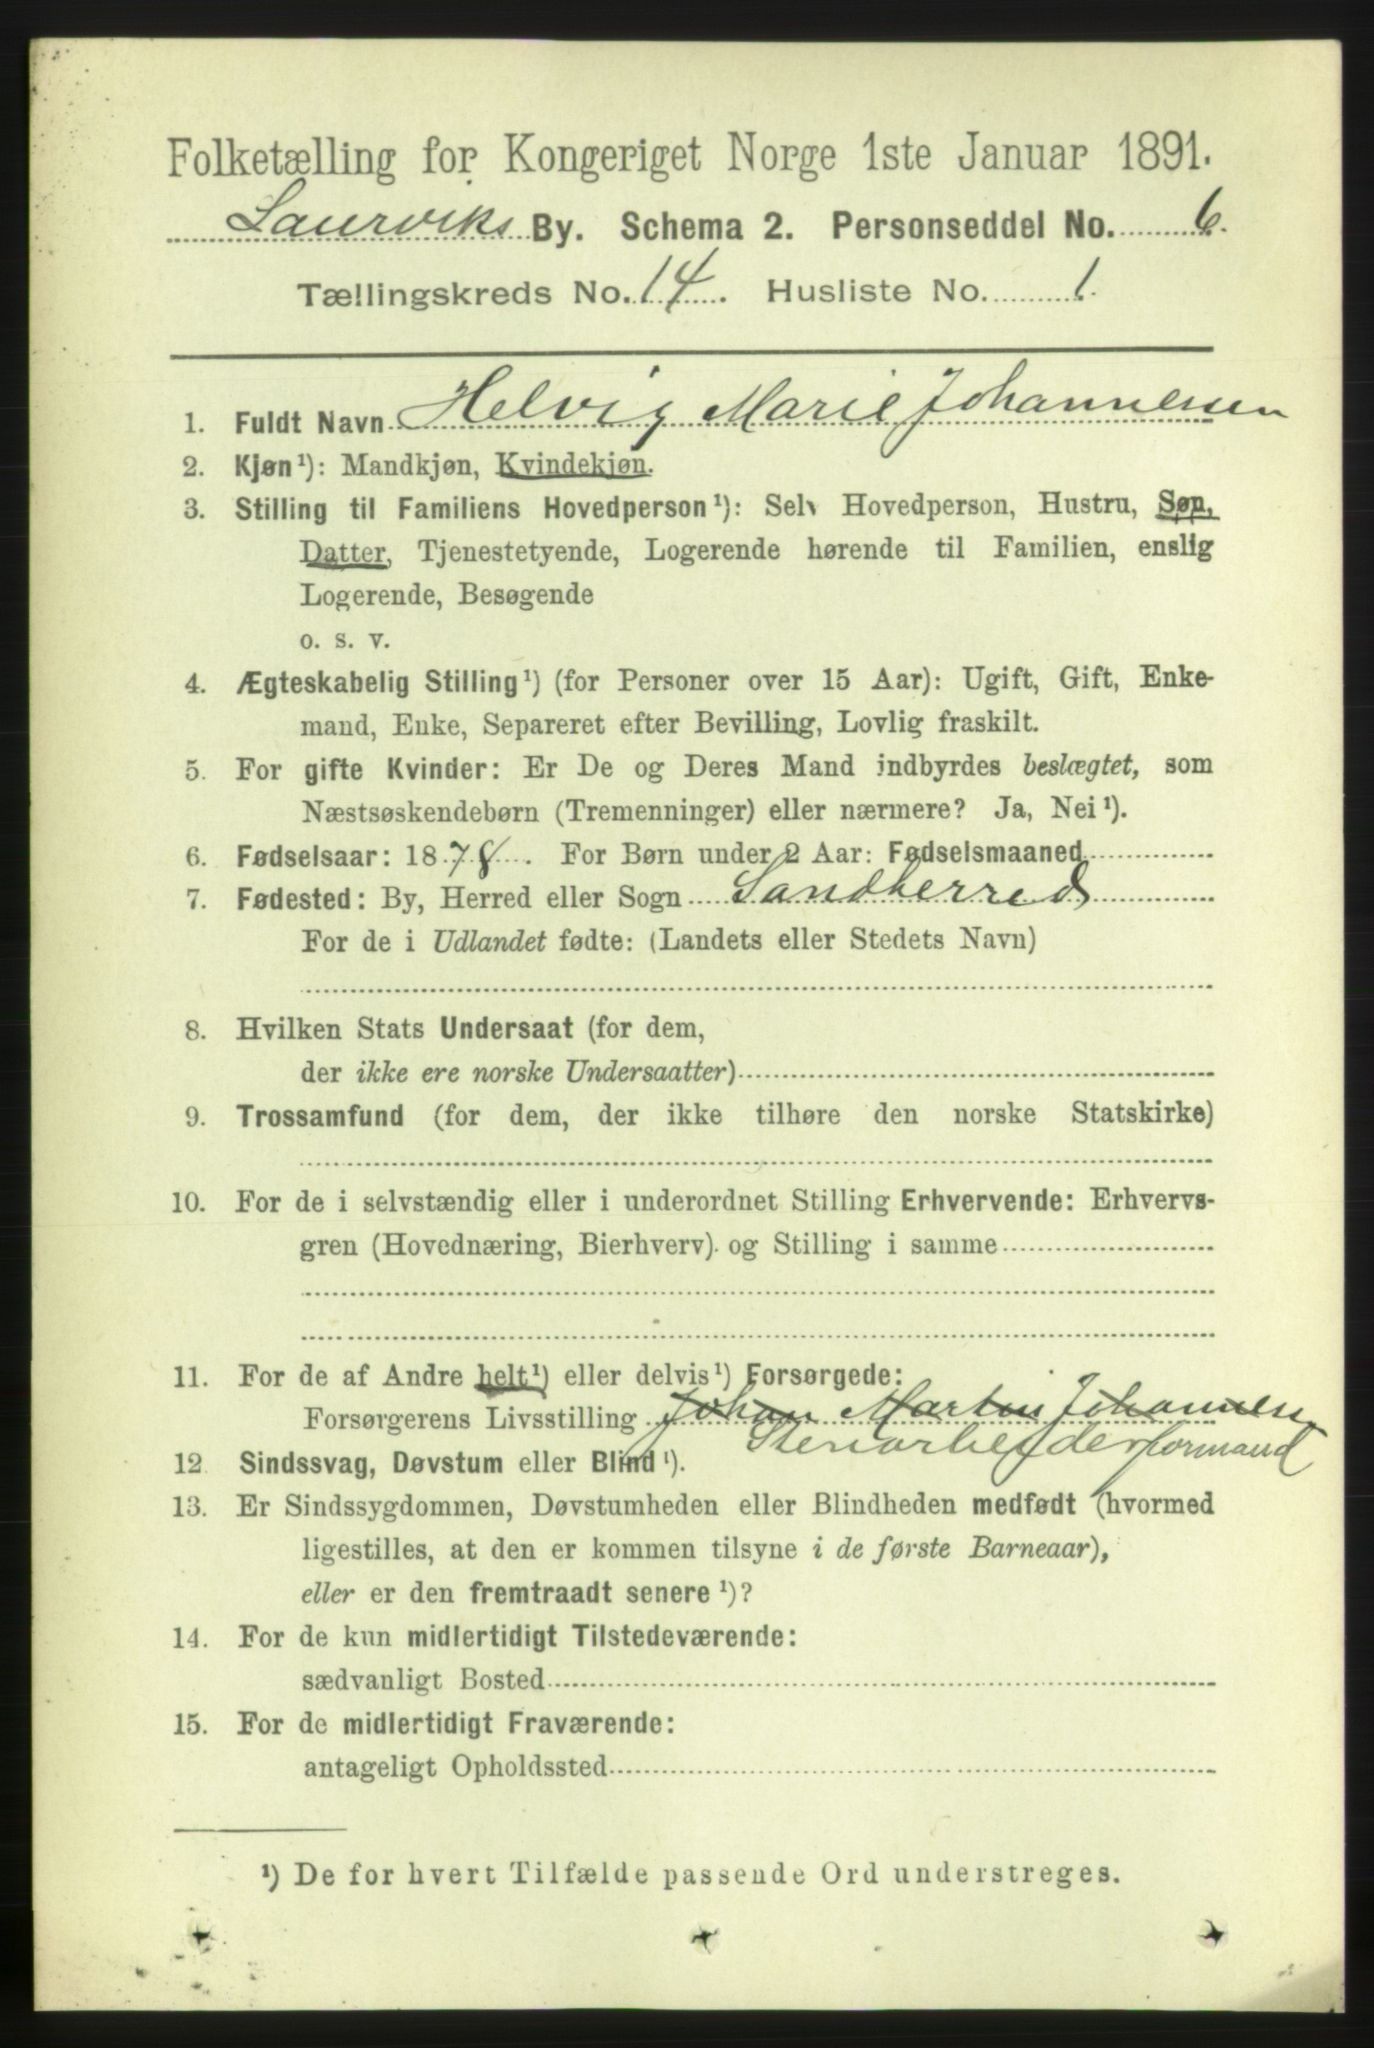 Folketælling for Kongeriget Norge 1ste Januar 1891.
Laurviks By. Schema 2. Personseddel No. 6.
Tællingskreds No. 14. Husliste No. 1.
1. Fuldt Navn Helvig Marie Johannessen
2. Kjøn¹): Mandkjøn, Kvindekjøn.
3. Stilling til Familiens Hovedperson¹): Selv Hovedperson, Hustru, Søn,
Datter, Tjenestetyende, Logerende hørende til Familien, enslig
Logerende, Besøgende
o. s. v.
4. Ægteskabelig Stilling¹) (for Personer over 15 Aar): Ugift, Gift, Enke-
mand, Enke, Separeret efter Bevilling, Lovlig fraskilt.
5. For gifte Kvinder: Er De og Deres Mand indbyrdes beslægtet, som
Næstsøskendebørn (Tremenninger) eller nærmere? Ja, Nei¹).
6. Fødselsaar: 1878. For Børn under 2 Aar: Fødselsmaaned
7. Fødested: By, Herred eller Sogn Sandherred
For de i Udlandet fødte: (Landets eller Stedets Navn)
8. Hvilken Stats Undersaat (for dem,
der ikke ere norske Undersaatter)
9. Trossamfund (for dem, der ikke tilhøre den norske Statskirke)
10. For de i selvstændig eller i underordnet Stilling Erhvervende: Erhvervs-
gren (Hovednæring, Bierhverv) og Stilling i samme
11. For de af Andre helt¹) eller delvis¹) Forsørgede:
Forsørgerens Livsstilling Johan Martin Johannesen
Stenarbeiderformand
12. Sindssvag, Døvstum eller Blind¹).
13. Er Sindssygdommen, Døvstumheden eller Blindheden medfødt (hvormed
ligestilles, at den er kommen tilsyne i de første Barneaar),
eller er den fremtraadt senere¹)?
14. For de kun midlertidigt Tilstedeværende:
sædvanligt Bosted
15. For de midlertidigt Fraværende:
antageligt Opholdssted
¹) De for hvert Tilfælde passende Ord understreges.